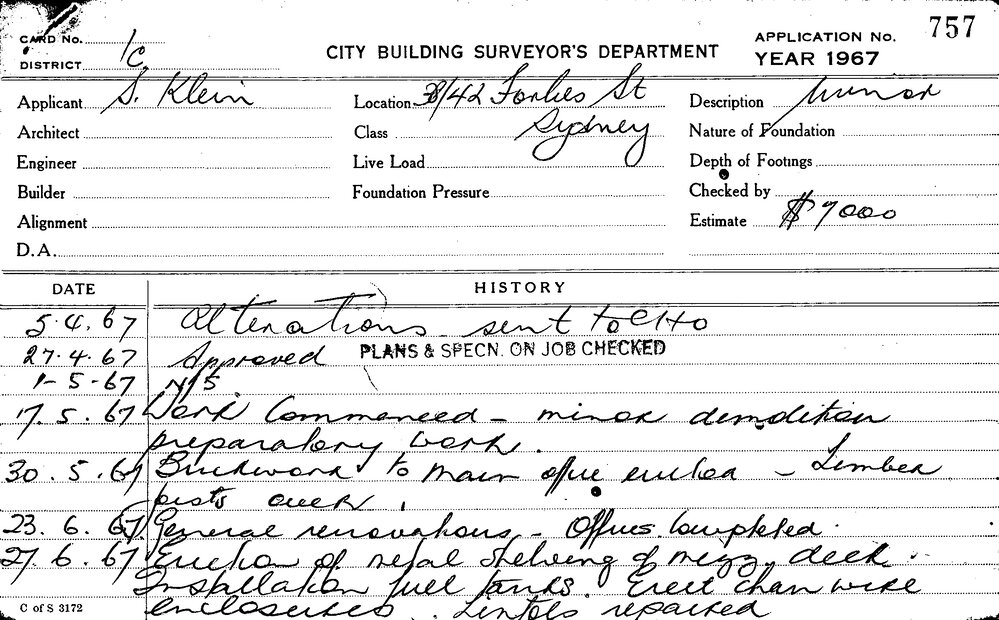 CARD No.
DISTRICT 1C
CITY BUILDING SURVEYOR'S DEPARTMENT
APPLICATION No. 757
YEAR 1967
Applicant S. Klein
Location 38/42 Forbes St
Description Minor
Architect
Class Sydney
Nature of Foundation
Engineer
Live Load
Depth of Footings
Builder
Foundation Pressure
Checked by
Alignment
Estimate $7000
D.A.
DATE HISTORY
5.4.67 Alterations sent to CHO
27.4.67 Approved PLANS & SPECN. ON JOB CHECKED
1-5-67 N/S
17.5.67 Work Commenced - minor demolition
preparatory work.
30.5.67 Brickwork to main office erected - Timber
posts over.
23.6.67 General renovations - Offices Completed.
27.6.67 Erection of metal shelving of mezz deck.
Installation fuel tanks. Erect chain wire
enclosures. Lintols repaired
C of S 3172